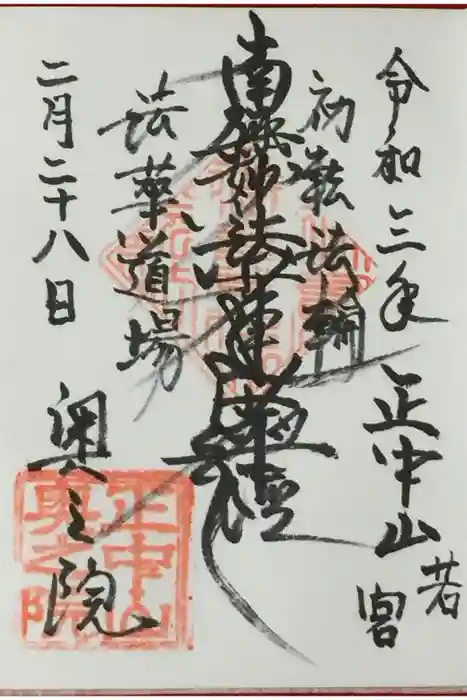 令和三年 正中山
若宮
初転法輪
南無妙法蓮華経
法華道場
二月二十八日
奥之院
正中山
奥之院